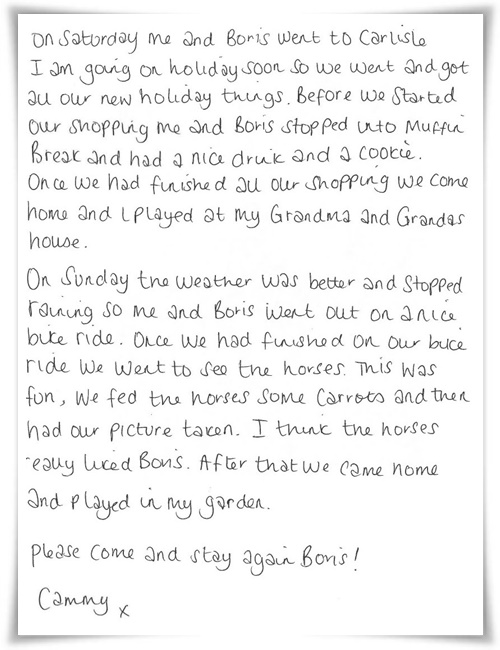 On Saturday me and Boris went to Carlisle
I am going on holiday soon so we went and got
all our new holiday things. Before we started
our shopping me and Boris stopped into Muffin
Break and had a nice drink and a cookie.
Once we had finished all our shopping we come
home and I played at my Grandma and Grandas
house.
On Sunday the weather was better and stopped
raining so me and Boris went out on a nice
bike ride. Once we had finished on our bike
ride we went to see the horses. This was
fun, we fed the horses some carrots and then
had our picture taken. I think the horses
really liked Boris. After that we came home
and played in my garden.
Please come and stay again Boris!
Cammy x